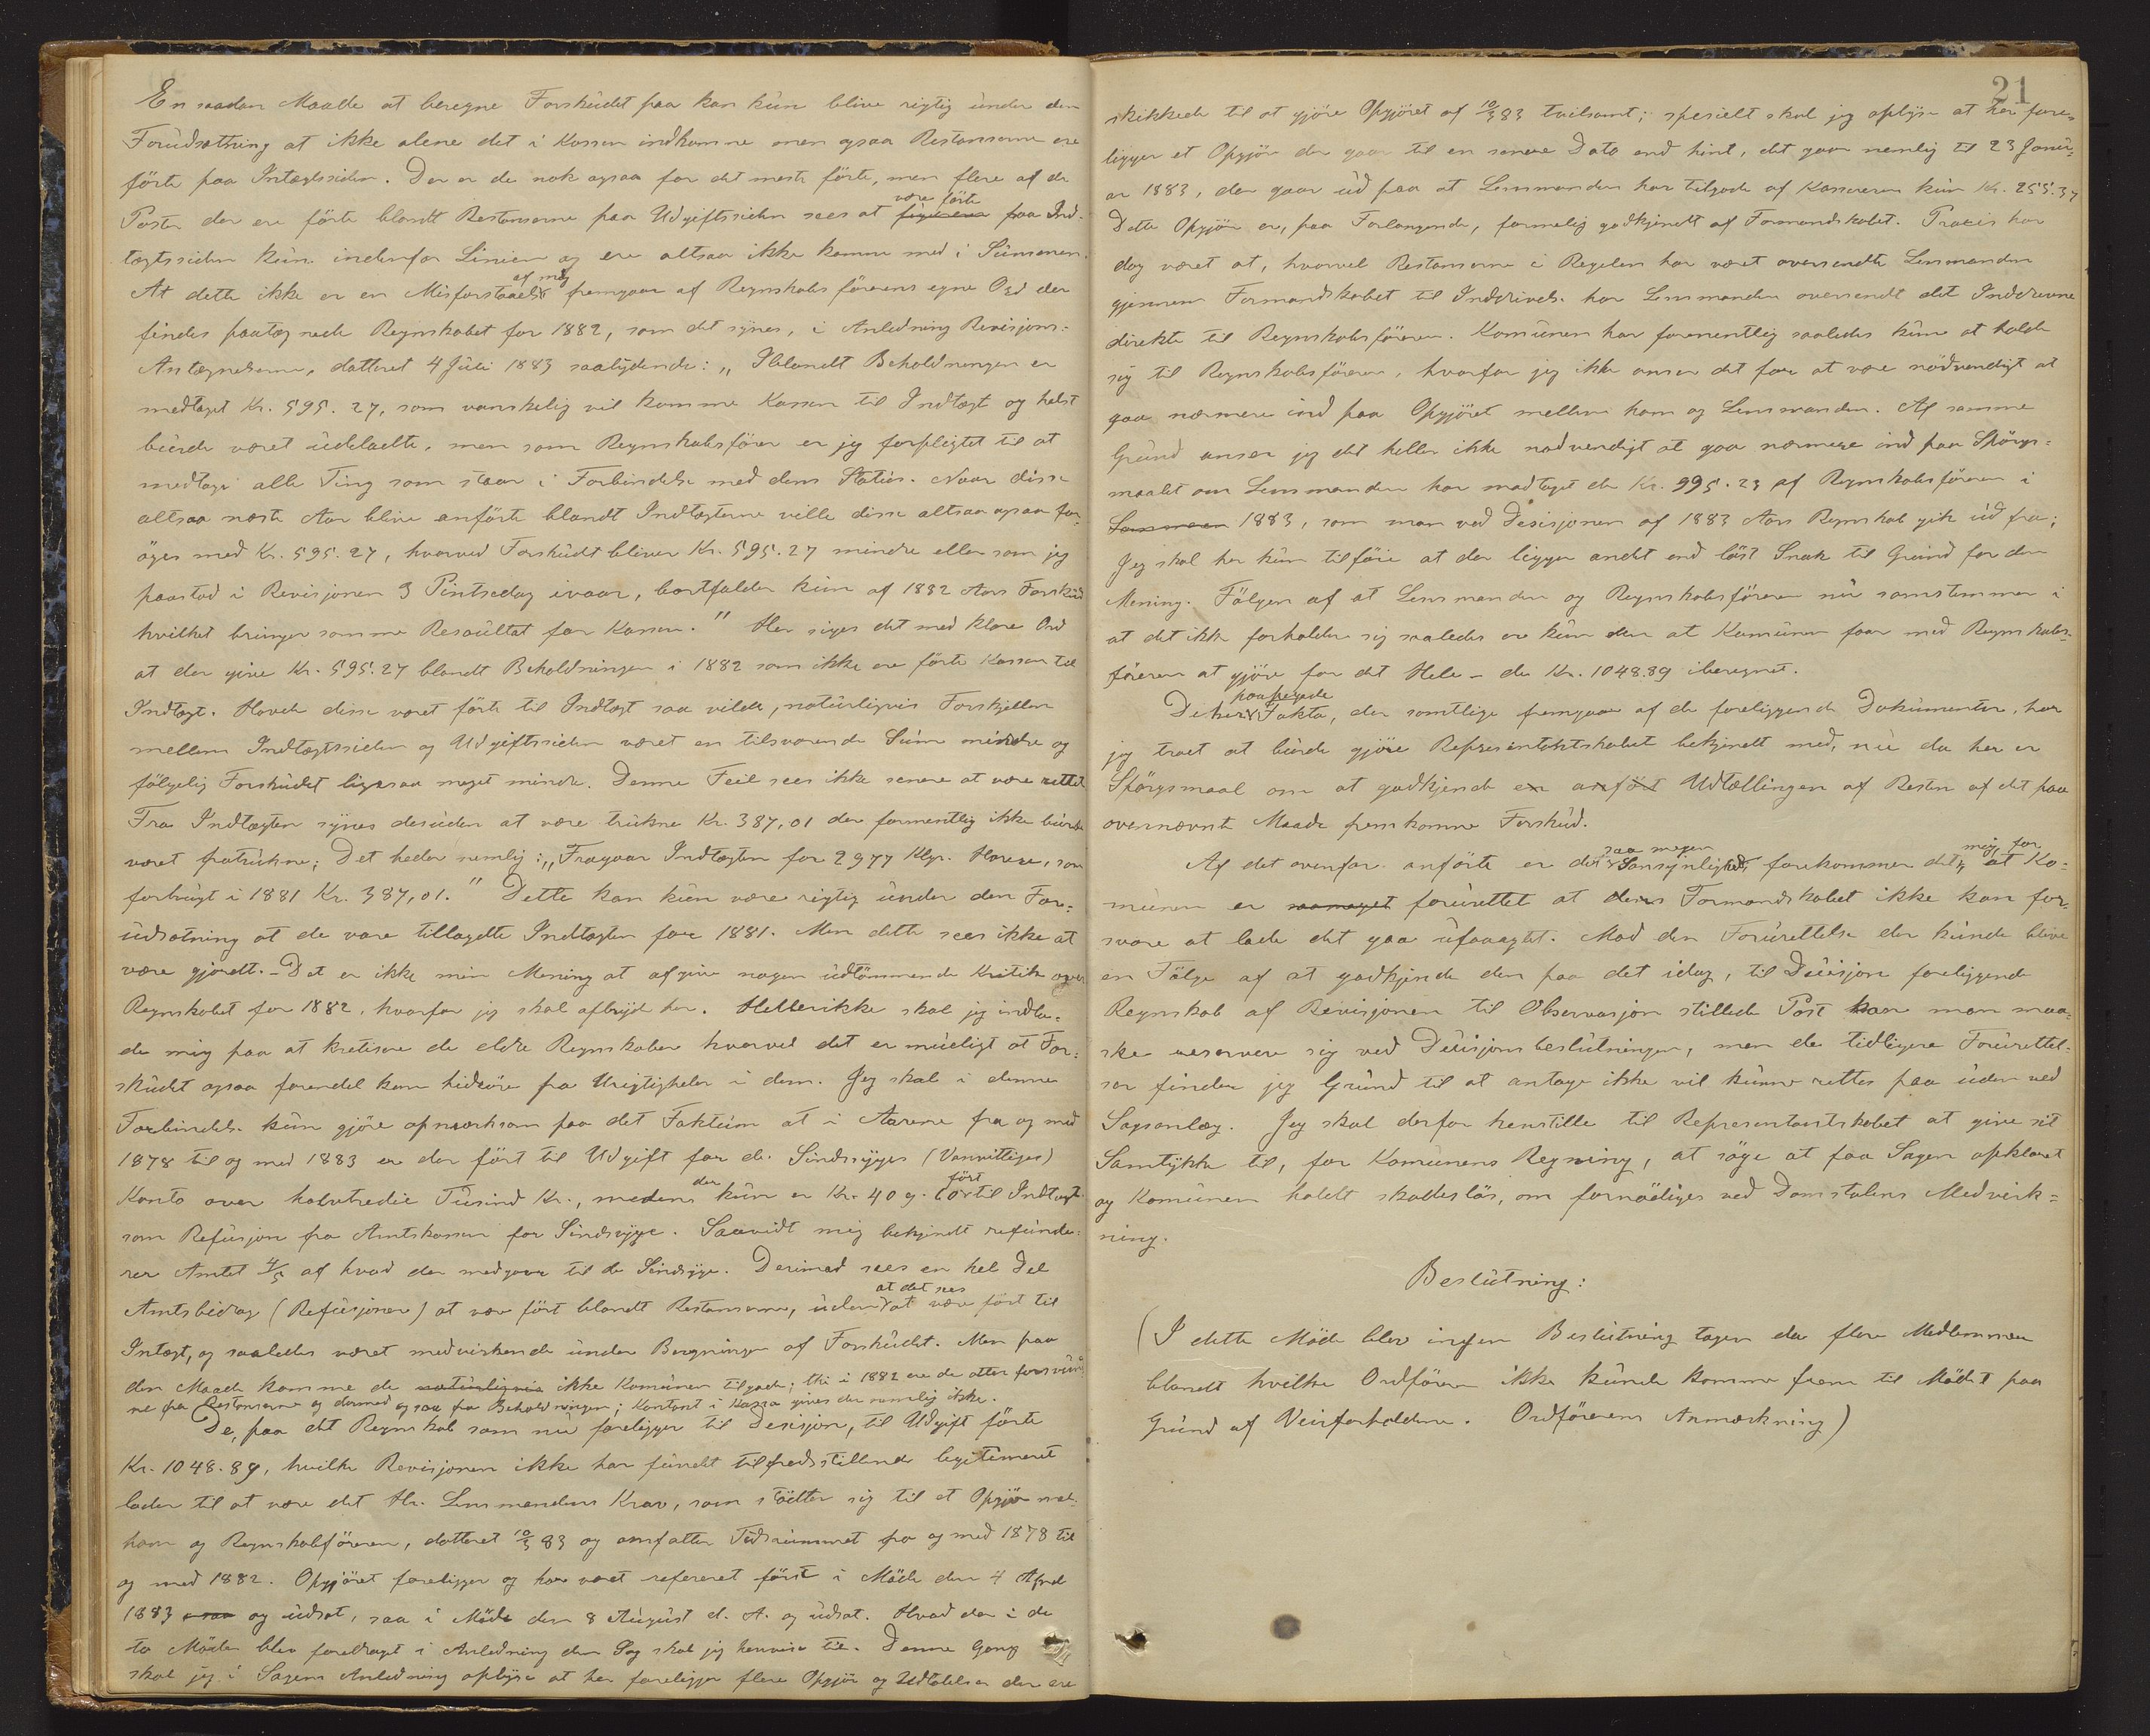 En saadan Maade at beregne Forskudet paa kan kun blive rigtig under den
Forudsætning at ikke alene det i Kassen indkomne men ogsaa Restanserne ere
förte paa Intægtssiden. Der er de nok ogsaa for det meste förte, men flere af de
Poster der ere förte blandt Restanserne paa Udgiftssiden sees at være förte paa Ind-
tægtssiden kun indenfor Linien og ere altsaa ikke komne med i Summen.
At dette ikke er en Misforstaaelse af mig fremgaar af Regnskabsförerens egne Ord der
findes paategnede Regnskabet for 1882, som det synes, i Anledning Revisjons-
Antegnelserne, datteret 4 Juli 1883 saalydende: „Iblandt Beholdningen er
medtaget Kr. 595.27, som vanskelig vil komme Kassen til Indtægt og helst
burde været udeladte, men som Regnskabsförer er jeg forpligtet til at
medtage alle Ting som staar i Forbindelse med dens Status. Naar disse
altsaa næste Aar blive anförte blandt Indtægterne ville disse altsaa ogsaa for-
öges med Kr. 595.27, hvorved Forskudt bliver Kr. 595.27 mindre eller som jeg
paastod i Revisjonen 3 Pintsedag ivaar, bortfalder kun af 1882 Aars Forskud
hvilket bringer samme Resultat for Kassen." Her siges det med klare Ord
at der give Kr. 595.27 blandt Beholdningen i 1882 som ikke ere förte Kassen til
Indtægt. Havde disse været förte til Indtægt saa vilde, naturligvis Forskjellen
mellem Indtægtssiden og Udgiftssiden været en tilsvarende Sum mindre og
fölgelig Forskudet ligesaa meget mindre. Denne Feil sees ikke senere at være rettet
Fra Indtægten synes desuden at være trukne Kr. 387,01 der formentlig ikke burde
været fratrukne; Det heder nemlig: „Fragaar Indtægten for 2977 Klgr. Havre, som
forbrugt i 1881 Kr. 387,01." Dette kan kun være rigtig under den For-
udsætning at de vare tillagdte Indtægten for 1881. Men dette sees ikke at
være gjordt. - Det er ikke min Mening at afgive nogen udtömmende Kritik over
Regnskabet for 1882, hvorfor jeg skal afbryde her. Hellerikke skal jeg indla-
de mig paa at kretisere de eldre Regnskaber hvorvel det er mueligt at For-
skudet ogsaa forendel kan hidröre fra Urigtigheder i dem. Jeg skal i denne
Forbindelse kun gjöre opmærksom paa det Faktum at i Aarene fra og med
1878 til og med 1883 er der fört til Udgift for de Sindssyges (Vanvittiges)
Konto over halvtredie Tusind Kr., medens der kun er Kr. 409. fört til Indtægt
som Refusjon fra Amtskassen for Sindssyge. Saavidt mig bekjendt refunde-
rer Amtet 4/5 af hvad der medgaar til de Sindsyge. Derimod sees en hel Del
Amtsbidrag (Refusjoner) at være fört blandt Restanserne, uden at det sees at være fört til
Intægt, og saaledes været medvirkende under Beregningen af Forskudet. Men paa
den Maade komme de naturligvis ikke Komunen tilgode; thi i 1882 ere de atter forsvun-
ne fra Restanserne og dermed ogsaa fra Beholdningen; Kontant i Kassa gives der nemlig ikke.
De, paa det Regnskab som nu foreligger til Desisjon, til Udgift förte
Kr. 1048.89, hvilke Revisjonen ikke har fundet tilfredsstillende legitimeret
lader til at være det Hr. Lensmandens Krav, som stötter sig til et Opgjör mel.
ham og Regnskabföreren, datteret 10/3 83 og omfatter Tidsrummet fra og med 1878 til
og med 1882. Opgjöret foreligger og har været refereret först i Möde den 4 April
1883 og udsat, saa i Möde den 8 August d. A. og udsat. Hvad der i de
to Möder blev foredraget i Anledning den Sag skal jeg henvise til. Denne Gang
skal jeg i Sagens Anledning oplyse at her foreligger flere Opgjör og Udtalelser der ere
21
skikkede til at gjöre Opgjöret af 10/3 83 tvilsomt; spesielt skal jeg oplyse at her fore-
ligger et Opgjör der gaar til en senere Dato end hint, det gaar nemlig til 23 Janu-
ar 1883, der gaar ud paa at Lensmanden har tilgode af Kassereren kun Kr. 255.37
Dette Opgjör er, paa Forlangende, formelig godkjendt af Formandskabet. Praxis har
dog været at, hvorvel Restanserne i Regelen har været oversendte Lensmanden
gjennem Formandskabet til Inddrivelse har Lensmanden oversendt det Inddrevne
direkte til Regnskabsföreren. Komunen har formentlig saaledes kun at holde
sig til Regnskabsföreren, hvorfor jeg ikke anser det for at være nödvendigt at
gaa nærmere ind paa Opgjöret mellem ham og Lensmanden. Af samme
Grund anser jeg det heller ikke nödvendigt at gaa nærmere ind paa Spörgs-
maalet om Lensmanden har modtaget de Kr. 995.23 af Regnskabsföreren i
1883, som man ved Desisjonen af 1883 Aars Regnskab gik ud fra;
Jeg skal her kun tilföie at der ligger andet end löst Snak til Grund for den
Mening. Fölgen af at Lensmanden og Regnskabsföreren nu samstemmer i
at det ikke forholder sig saaledes er kun den at Komunen faar med Regnskabs-
föreren at gjöre for det Hele - de Kr. 1048.89 iberegnet.
De her paapegede Fakta, der samtlige fremgaar af de foreliggende Dokumenter, har
jeg troet at burde gjöre Representantskabet bekjendt med, nu da her er
Spörgsmaal om at godkjende Udtællingen af Resten af det paa
ovennævnte Maade fremkomne Forskud.
Af det ovenfor anförte er der saa megen Sansynlighed, forekommer det mig, for at Ko-
munen er forurettet at dens Formandskabet ikke kan for-
svare at lade det gaa upaaagtet. Mod den Forurettelse der kunde blive
en Fölge af at godkjende den paa det idag, til Desisjon foreliggende
Regnskab af Revisjonen til Observasjon stillede Post kan man maa-
ske reservere sig ved Desisjonsbeslutningen, men de tidligere Forurettel-
ser finder jeg Grund til at antage ikke vil kunne rettes paa uden ved
Sagsanlæg. Jeg skal derfor henstille til Representantskabet at give sit
Samtykke til, for Komunens Regning, at söge at faa Sagen opklaret
og Komunen holdt skadeslös, om fornödiges ved Domstolens Medvirk-
ning.
Beslutning:
(I dette Möde blev ingen Beslutning tagen da flere Medlemmer
blandt hvilke Ordföreren ikke kunde komme frem til Mödet paa
Grund af Veirforholdene. Ordförerens Anmærkning)